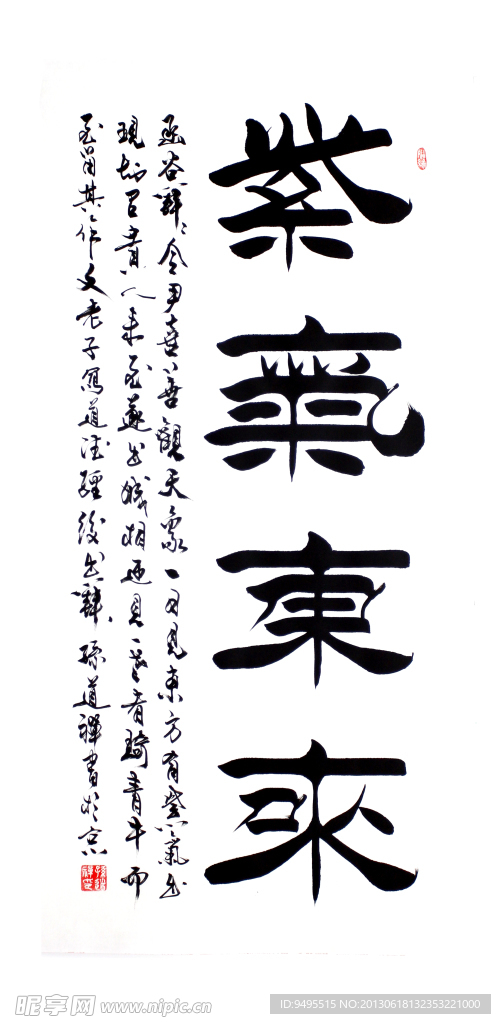 紫氣東來
函谷關令尹喜善觀天象一日見東方有紫氣出
現知有貴人來至遂出城相迎見一長者騎青牛而
至留其作文老子寫道德經後出關孫道禪書於京
昵享网 www.nipic.cn
ID:9495515 NO:20130618132353221000